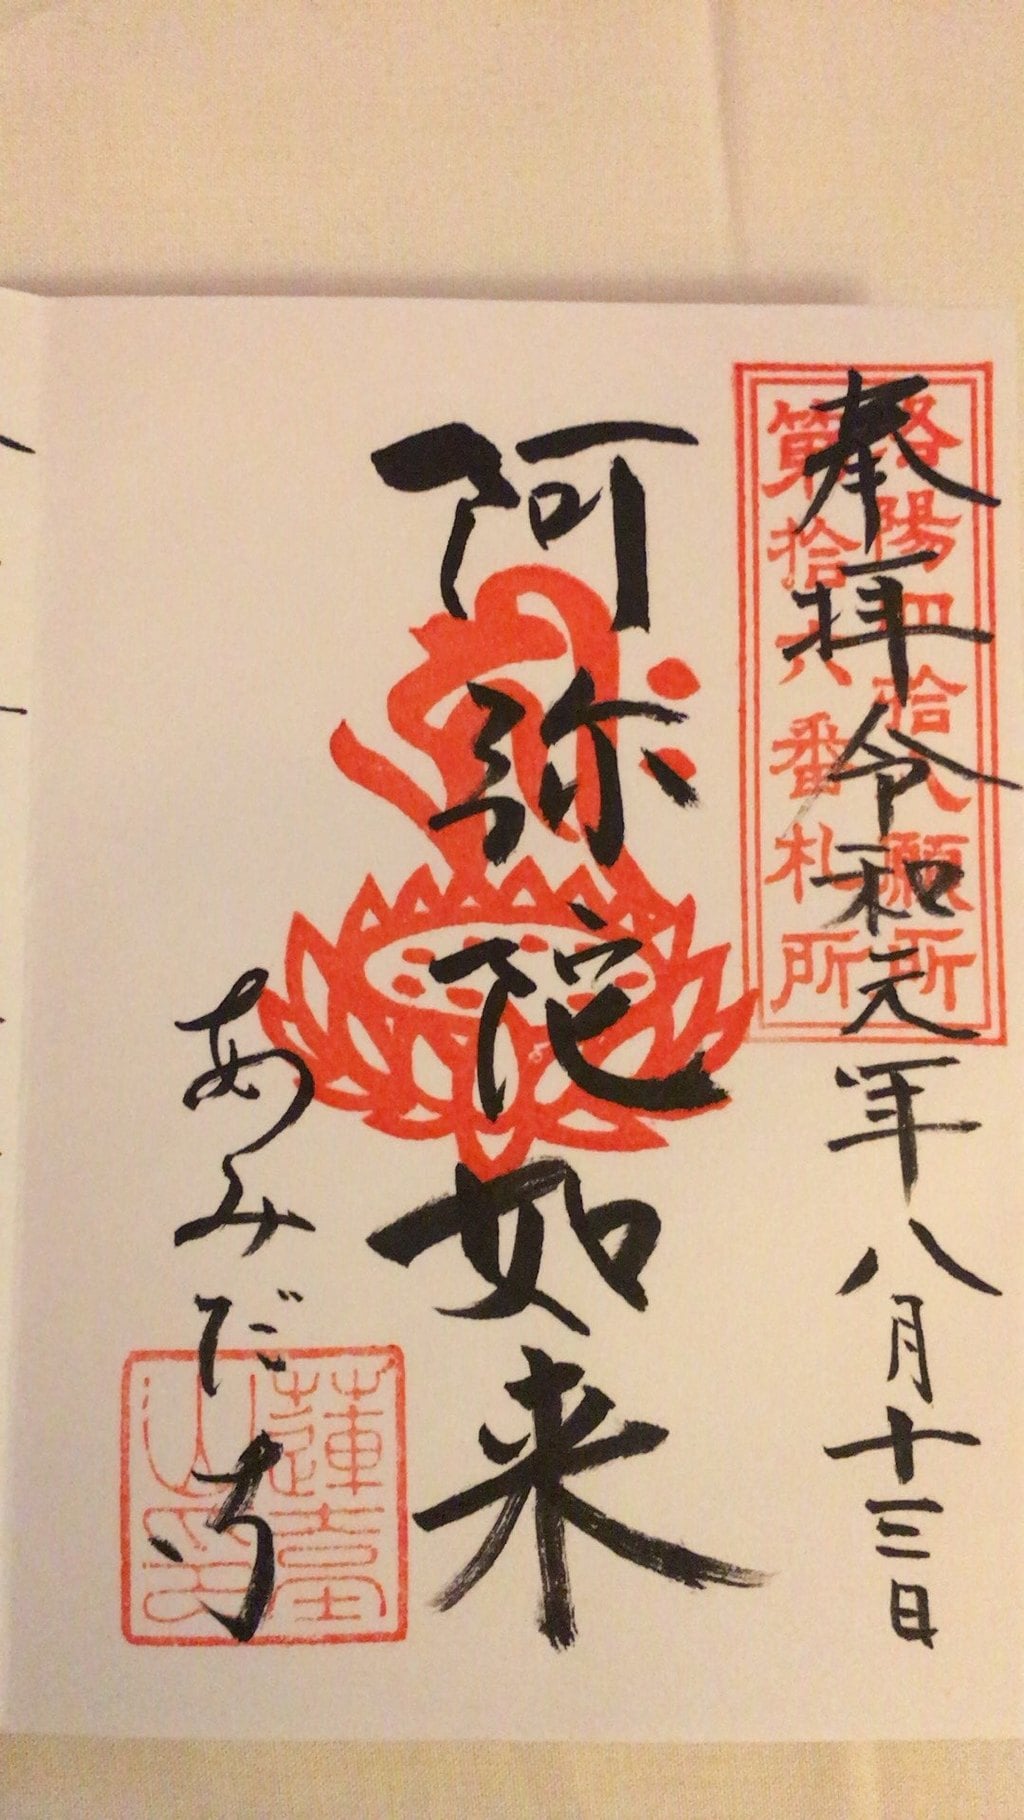 奉拝令和元年八月十三日
洛陽四拾八願所
第拾六番札所
阿弥陀如来
あみだ寺
蓮臺
山印